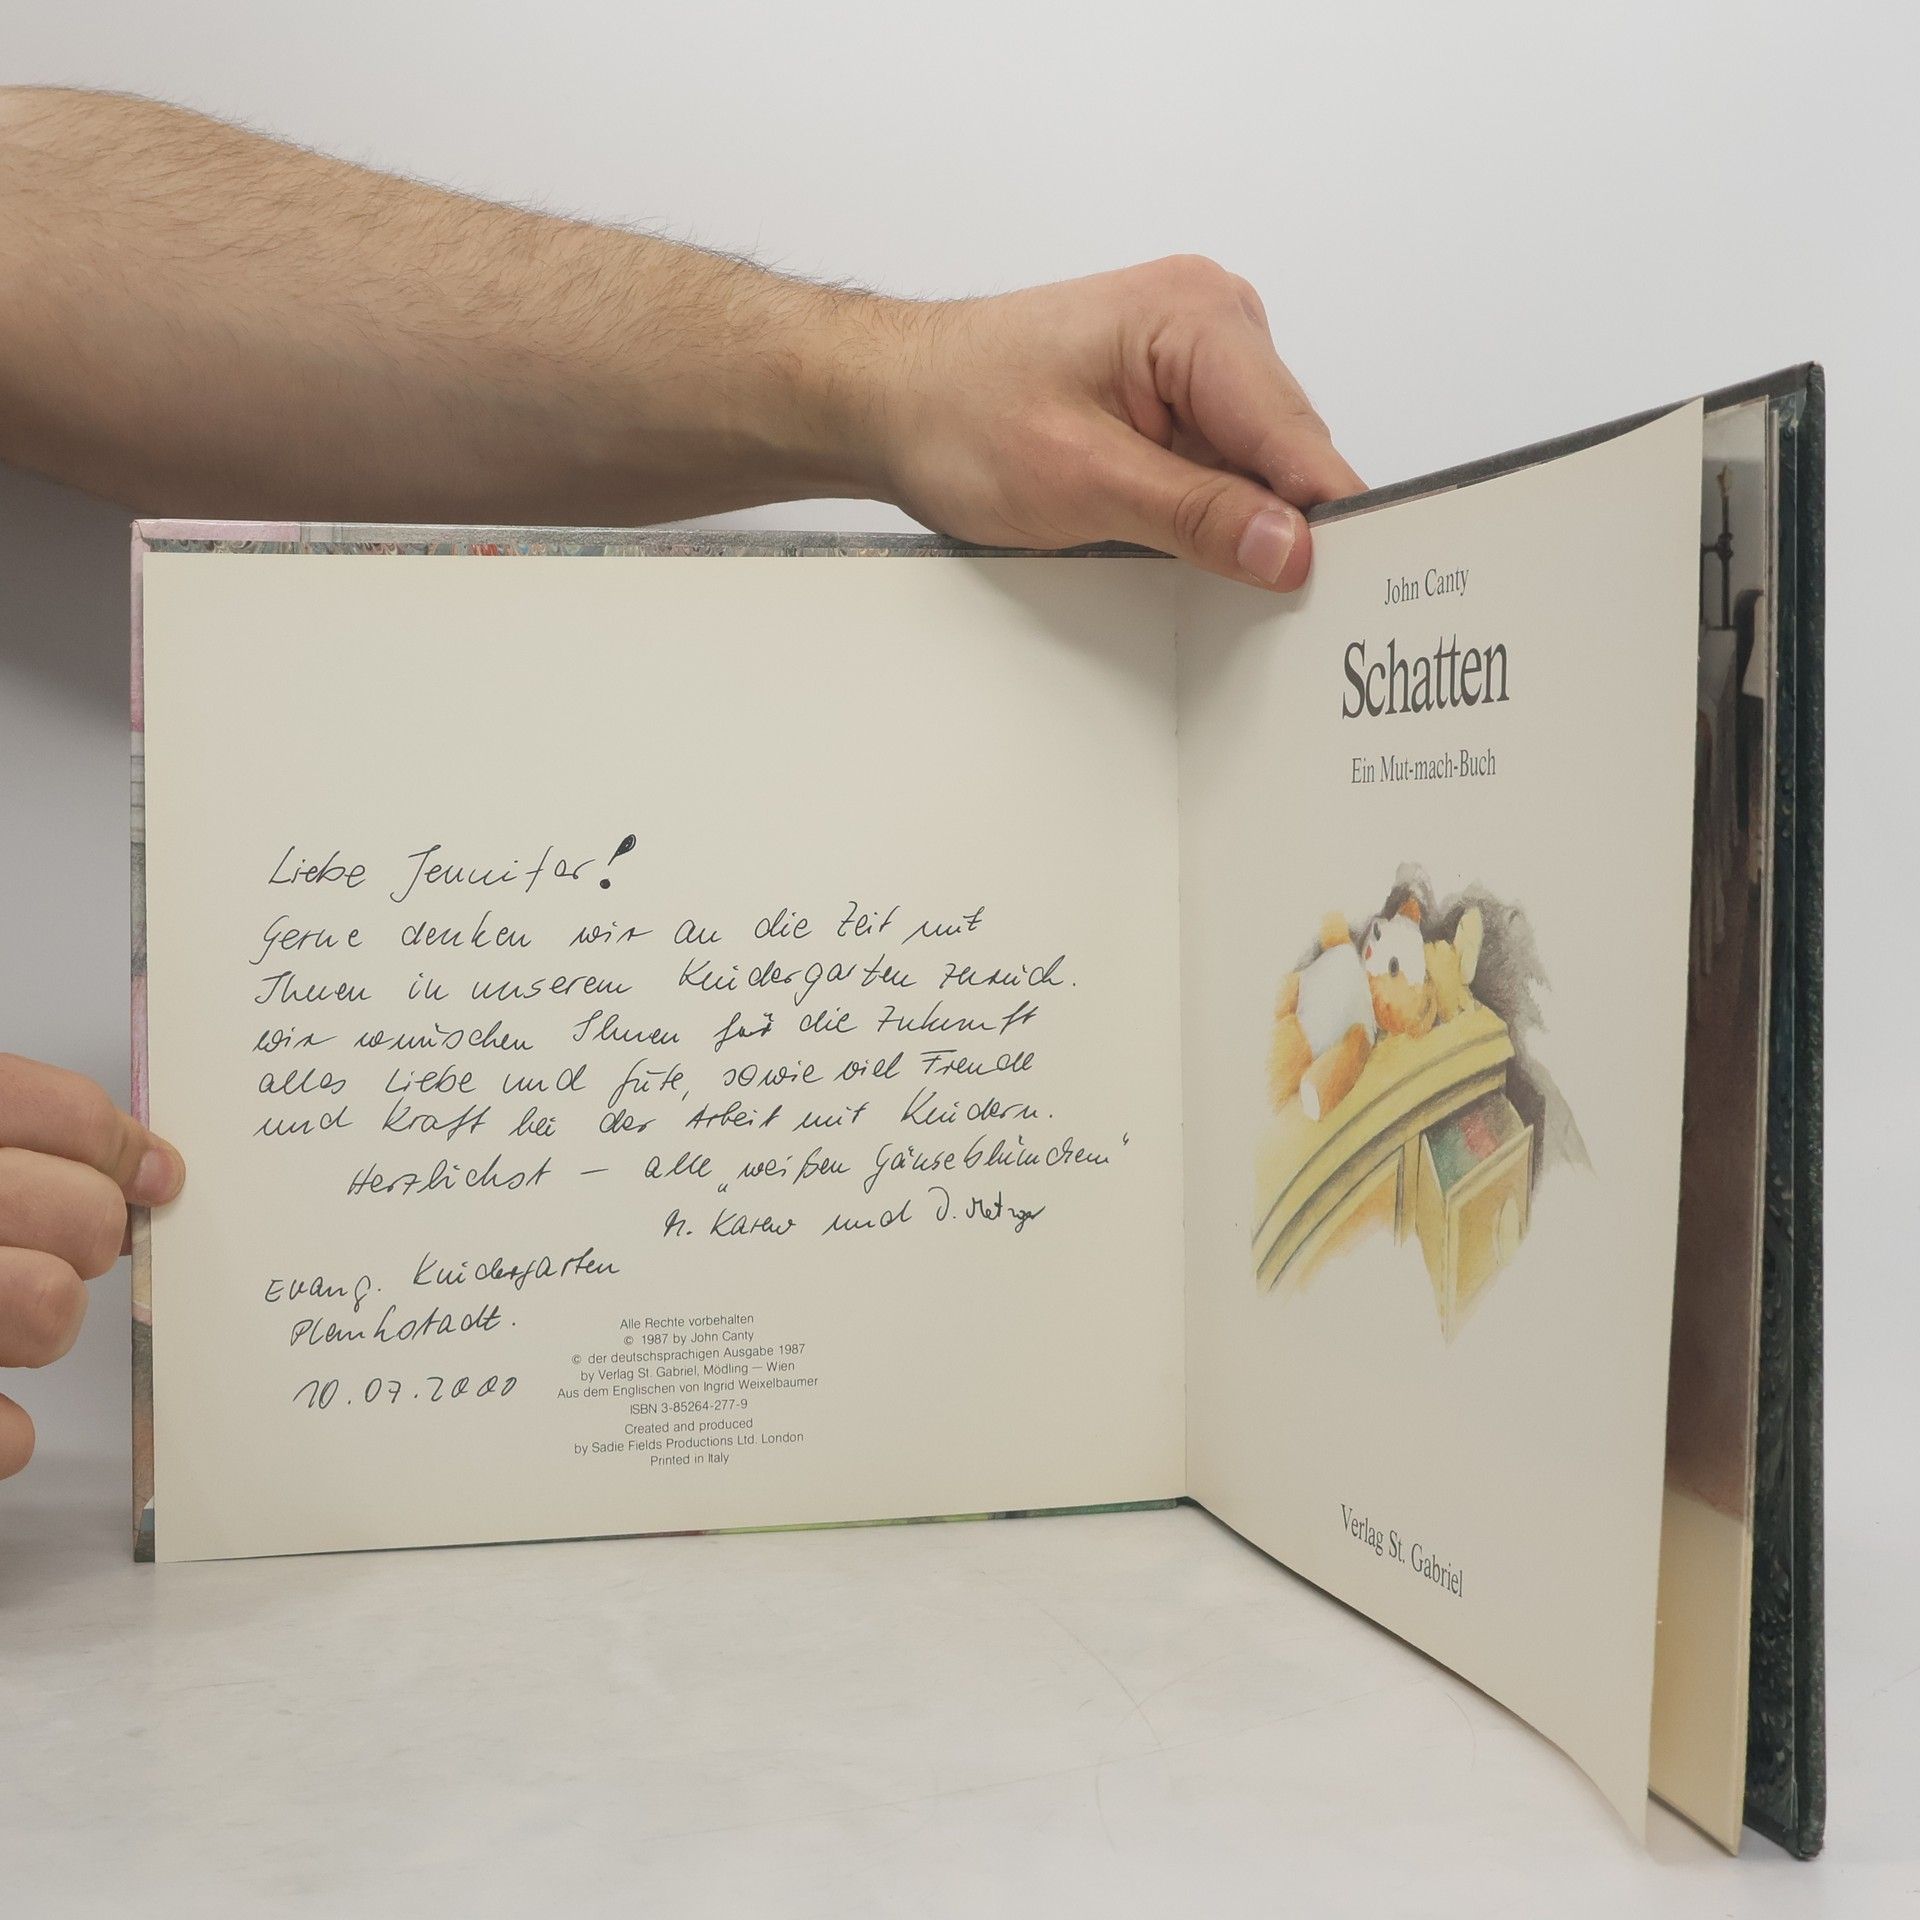 Liebe Jennifer!
Gerne denken wir an die Zeit mit
Ihnen in unserem Kindergarten zurück.
Wir wünschen Ihnen für die Zukunft
alles Liebe und Gute, sowie viel Freude
und Kraft bei der Arbeit mit Kindern.
Herzlichst — alle „weißen Gänseblümchen“
und D. Metzger
Evang. Kindergarten
Plankstadt.
10.07.2000
Alle Rechte vorbehalten
© 1987 by John Canty
© der deutschsprachigen Ausgabe 1987
by Verlag St. Gabriel, Mödling — Wien
Aus dem Englischen von Ingrid Weixelbaumer
ISBN 3-85264-277-9
Created and produced
by Sadie Fields Productions Ltd. London
Printed in Italy
John Canty
Schatten
Ein Mut-mach-Buch
Verlag St. Gabriel